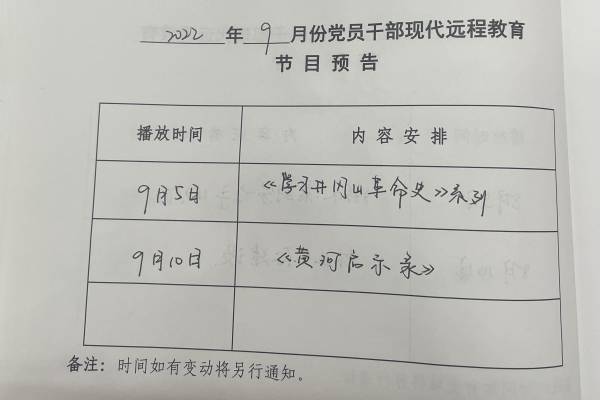 2022年9月份党员干部现代远程教育
节目预告
播放时间 内容安排
9月5日 《学习井冈山革命史》系列
9月10日 《黄河启示录》
备注：时间如有变动将另行通知。